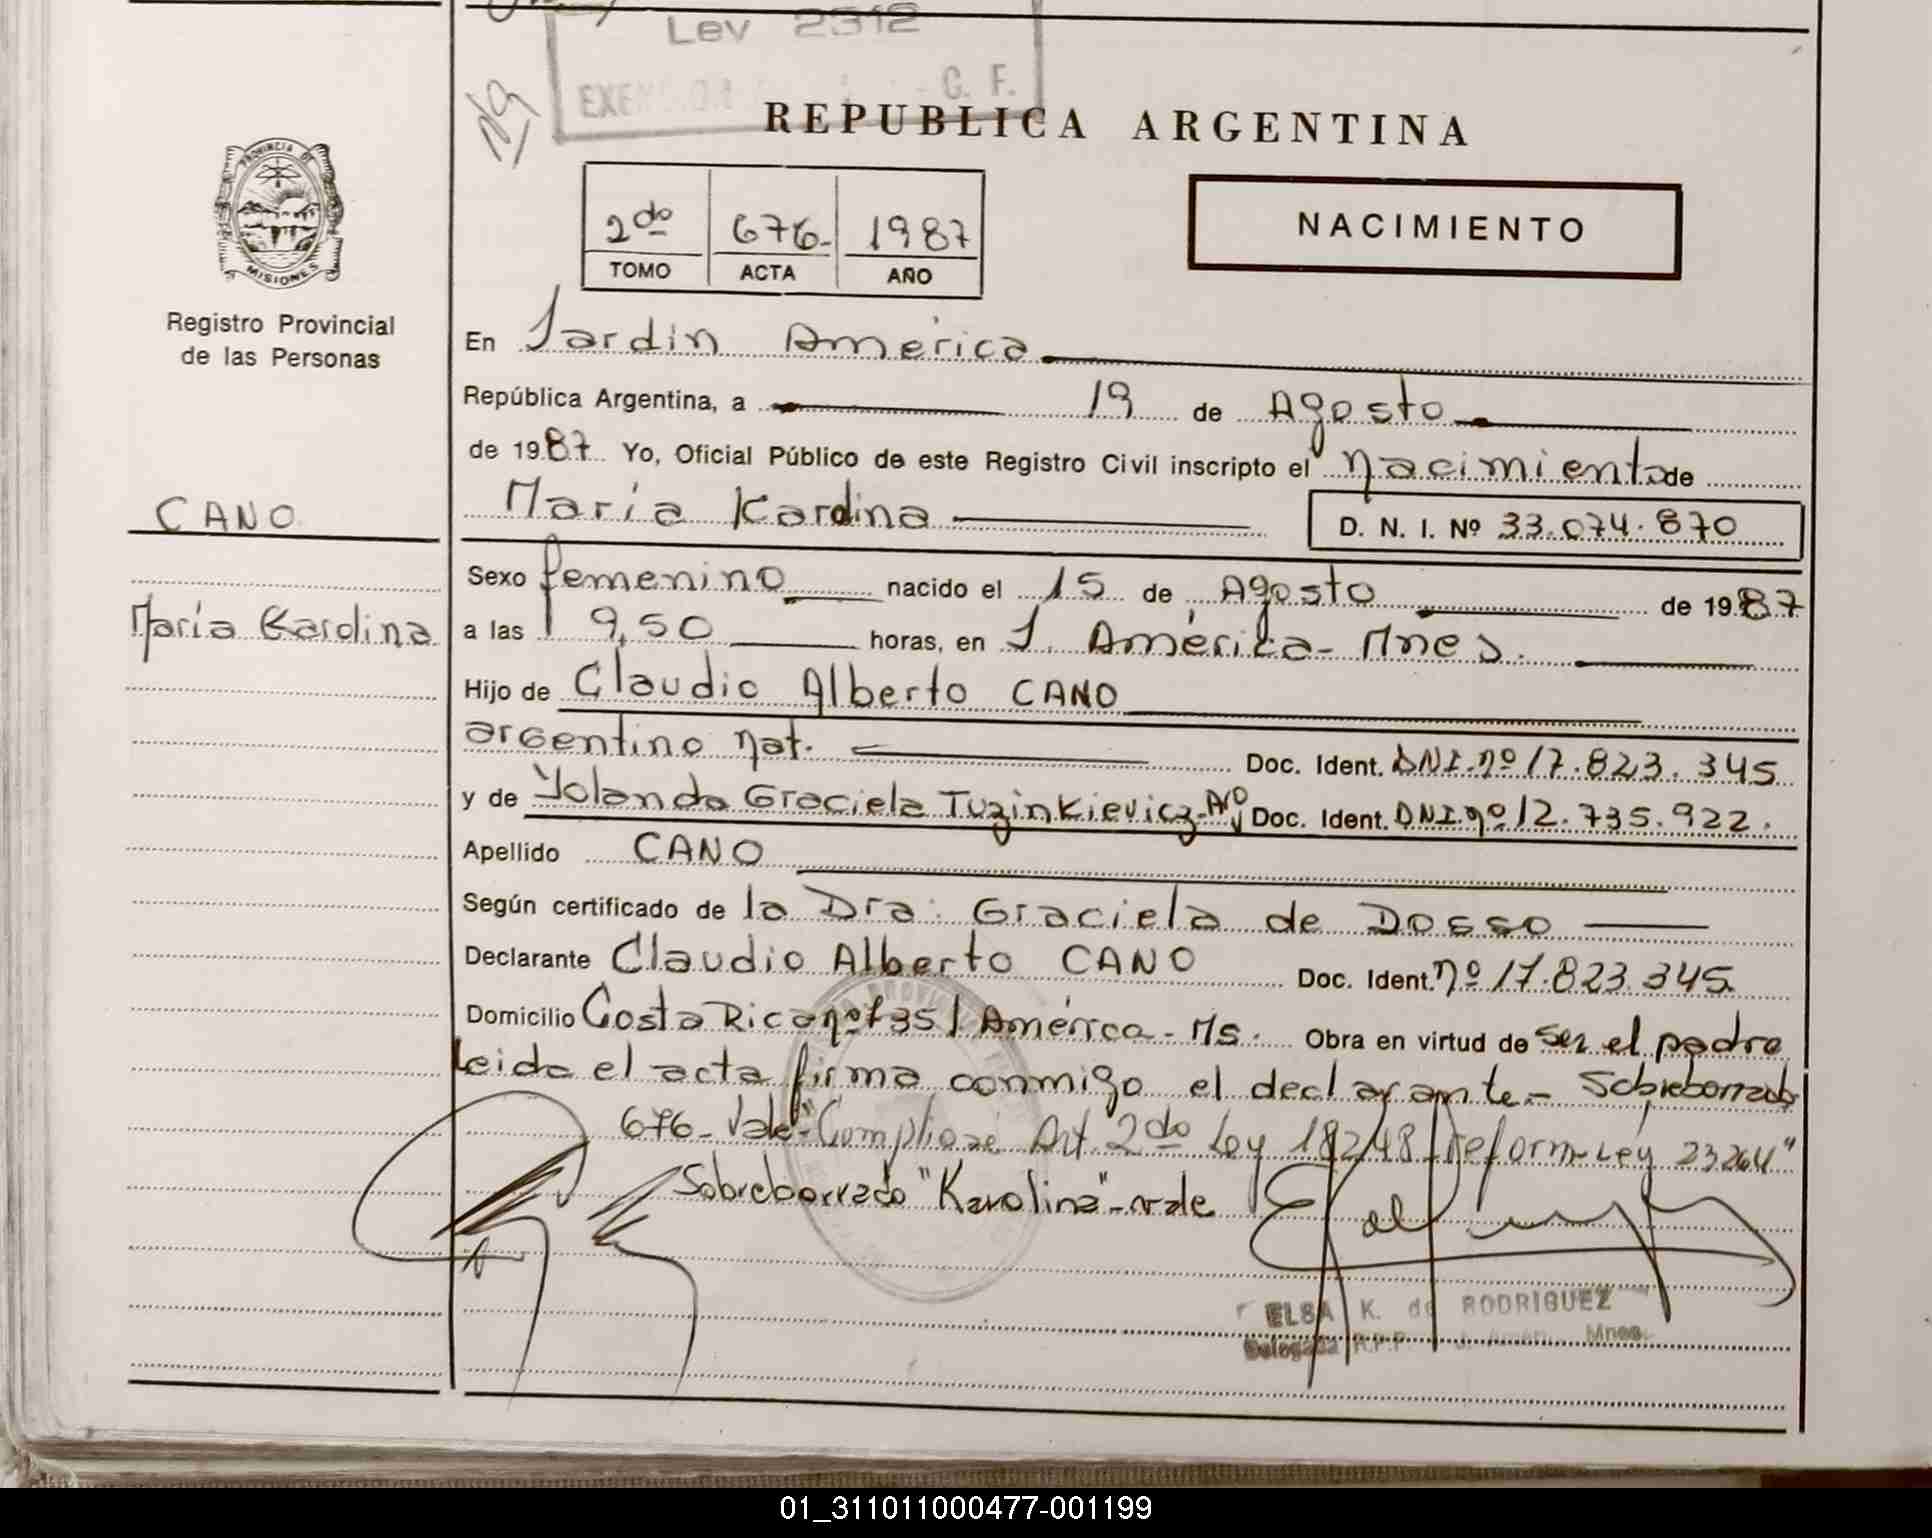 Ley 2312
EXEN C. F.
REPUBLICA ARGENTINA
PROVINCIA DE
MISIONES
Registro Provincial
de las Personas
2do 676- 1987
TOMO ACTA AÑO
NACIMIENTO
En Jardín América
República Argentina, a 19 de Agosto
de 1987 Yo, Oficial Público de este Registro Civil inscripto el nacimiento de
CANO
María Karolina D. N. I. Nº 33.074.870
María Karolina
Sexo femenino nacido el 15 de Agosto de 1987
a las 9,50 horas, en J. América- Mnes.
Hijo de Claudio Alberto CANO
argentino nat. Doc. Ident. DNI.nº 17.823.345
y de Yolanda Graciela Tuzinkievicz- Doc. Ident. DNI.nº 12.735.922.
Apellido CANO
Según certificado de la Dra. Graciela de Dosso
Declarante Claudio Alberto CANO Doc. Ident. nº 17.823.345
Domicilio Costa Rica nº 735 J América - Ms. Obra en virtud de ser el padre
Leida el acta firma conmigo el declarante.- Sobreborrado
676- Vale- "Complíose Art. 2do Ley 18248 reform-Ley 23264"
Sobreborrado "Karolina"-vale
ELSA K. de RODRIGUEZ
Delegada R.P.P. J. Amér. Mnes.
01_311011000477-001199